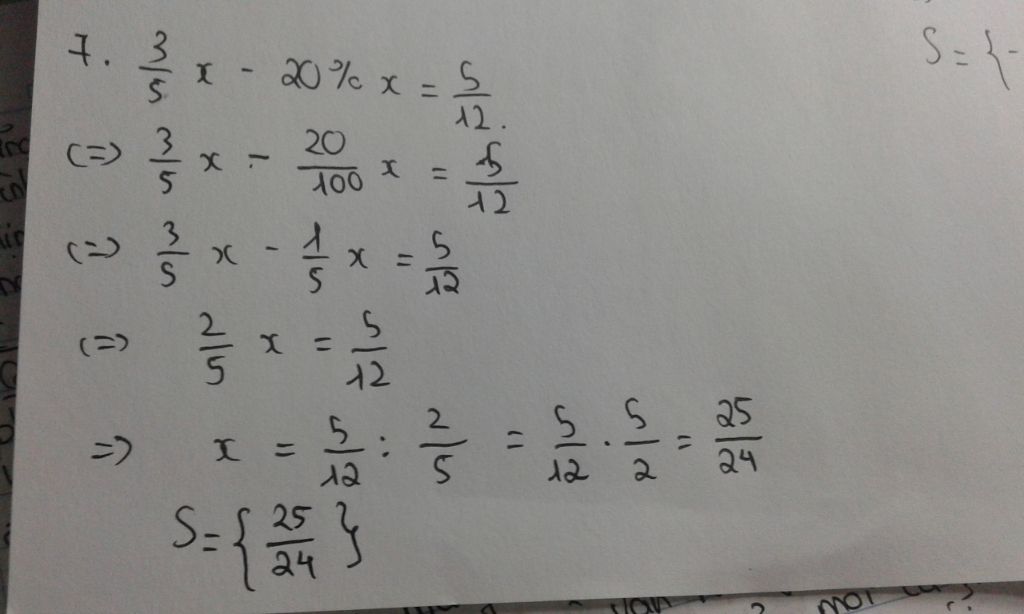 7. 3/5 x - 20% x = 5/12.
(=) 3/5 x - 20/100 x = 5/12
(=) 3/5 x - 1/5 x = 5/12
(=) 2/5 x = 5/12
=) x = 5/12 : 2/5 = 5/12 . 5/2 = 25/24
S={25/24}
S={-